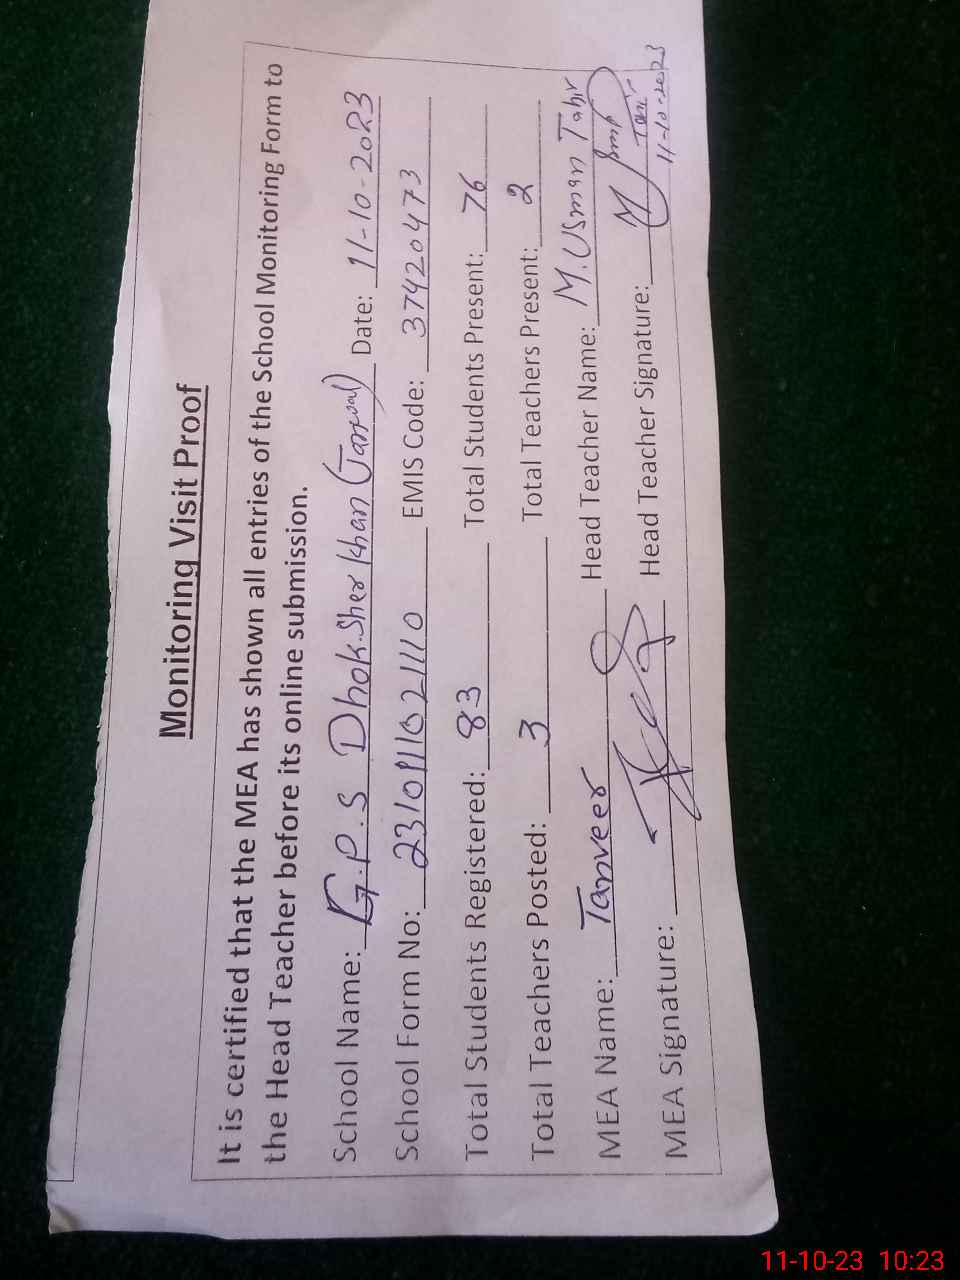 Monitoring Visit Proof
It is certified that the MEA has shown all entries of the School Monitoring Form to
the Head Teacher before its online submission.
School Name: G.P.S Dhok Sher Khan Date: 11-10-2023
School Form No: EMIS Code: 37420473
Total Students Registered: 83 Total Students Present: 76
Total Teachers Posted: 3 Total Teachers Present: 2
MEA Name: Tanveer Head Teacher Name: M. Usman Tahir
MEA Signature: Head Teacher Signature:
11-10-2023
11-10-23 10:23